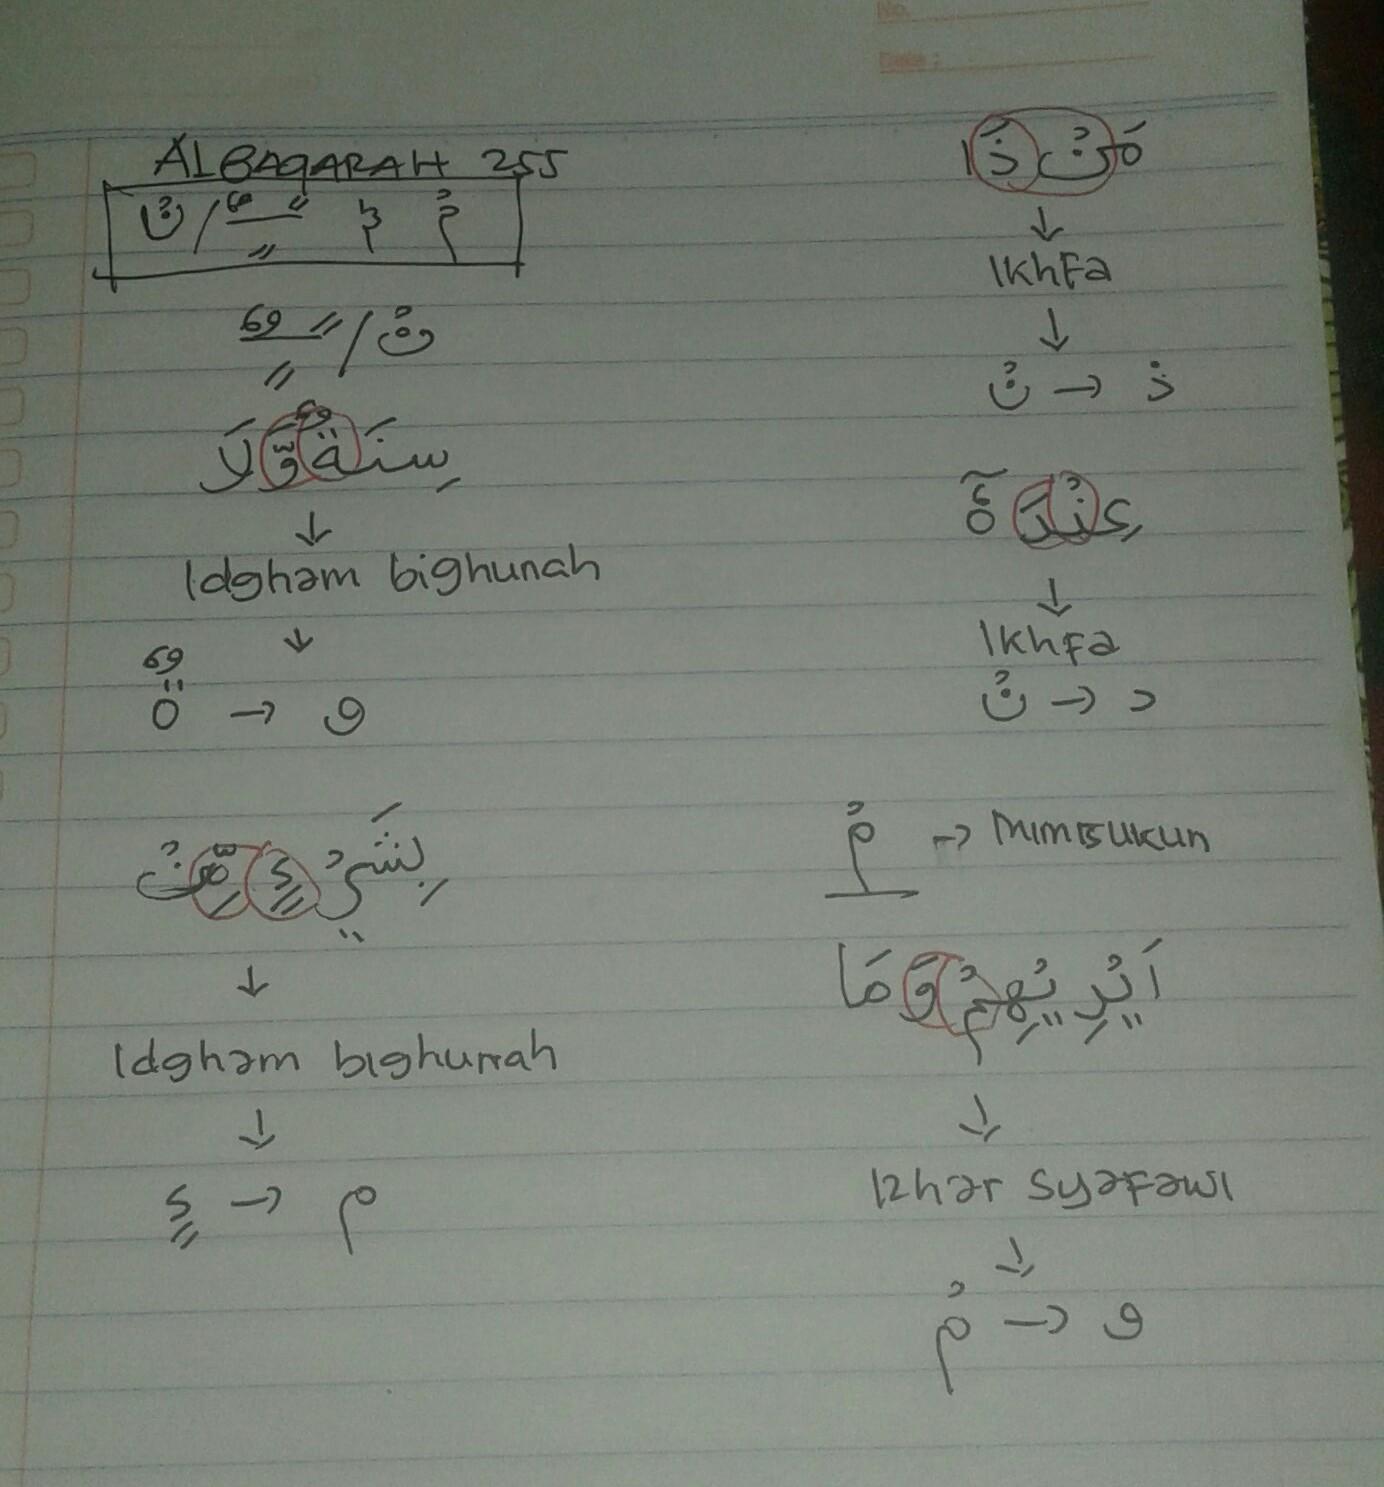 No.
Date :
ALBAQARAH 255
نْ / ـًـٍـٌ مْ مْ
نْ / ـًـٍـٌ
سِنَةٌ وَّلَا
↓
Idgham bighunah
↓
ةٌ → و
بِشَيْءٍ مِّنْ
↓
Idgham bighunnah
↓
ءٍ → م
مَنْ ذَا
↓
Ikhfa
↓
نْ → ذ
عِنْدَهٗٓ
↓
Ikhfa
نْ → د
مْ → mim sukun
اَيْدِيْهِمْ وَمَا
↓
Izhar syafawi
↓
مْ → و